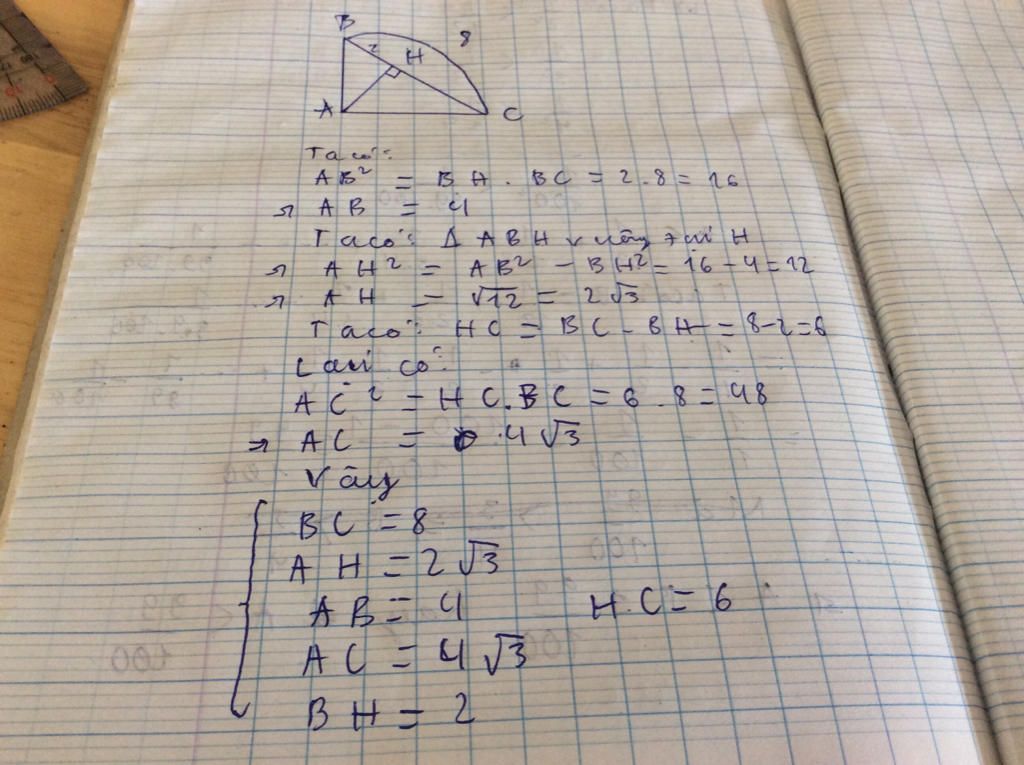 B
8
2
H
A
C
Ta có:
AB² = BH . BC = 2.8 = 16
=> AB = 4
Ta có: Δ ABH vuông tại H
=> AH² = AB² - BH² = 16 - 4 = 12
=> AH = √12 = 2√3
Ta có: HC = BC - BH = 8-2=6
Lại có:
AC² = HC.BC = 6.8 = 48
=> AC = 4√3
Vậy
BC = 8
AH = 2√3
AB = 4 HC = 6
AC = 4√3
BH = 2